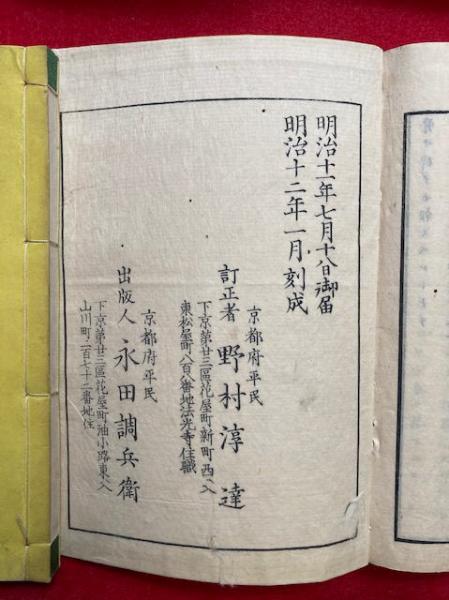 明治十一年七月十八日御届
明治十二年一月刻成
京都府平民
訂正者 野村淳達
下京第廿三區花屋町新町西入
東松屋町八百八番地法光寺住職
京都府平民
出版人 永田調兵衛
下京第廿三區花屋町油小路東入
山川町二百七十二番地住